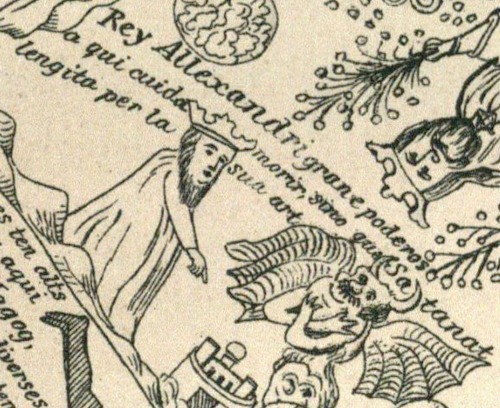 Rey Allexandri gran e poderos
a qui cuida morir, sino que Satanat
lengita per la sua art
ten alts
aqui
diverses